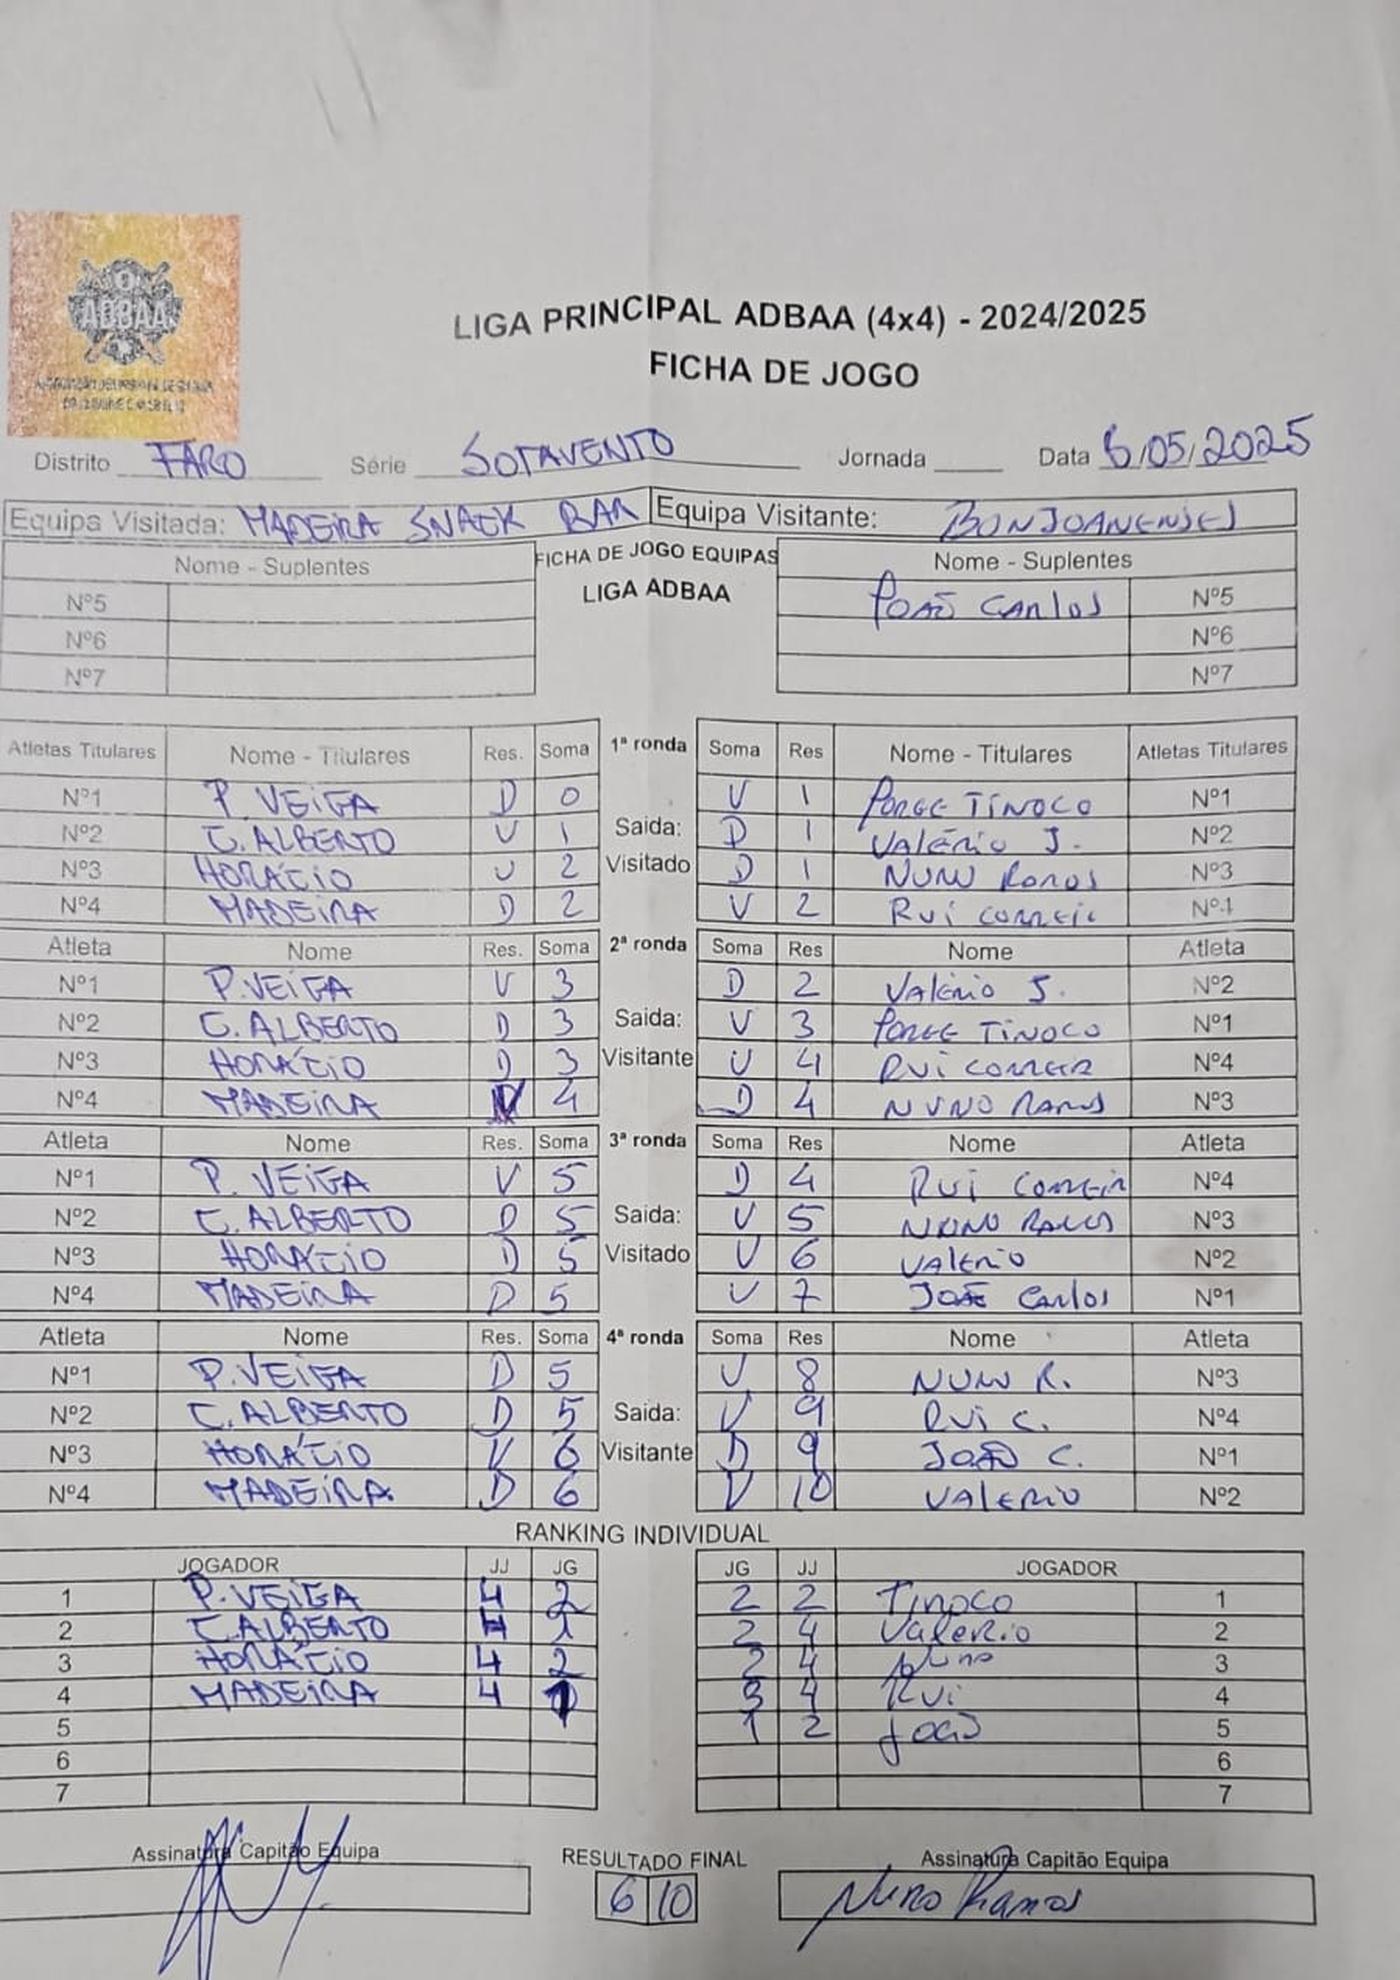 ADBAA
LIGA PRINCIPAL ADBAA (4x4) - 2024/2025
FICHA DE JOGO
Distrito FARO Série SOTAVENTO Jornada Data 6/05/2025
Equipa Visitada: MADEIRA SNACK BAR Equipa Visitante: BONJOANENSES
Nome - Suplentes FICHA DE JOGO EQUIPAS Nome - Suplentes
LIGA ADBAA
Nº5 JOÃO CARLOS Nº5
Nº6 Nº6
Nº7 Nº7
Atletas Titulares Nome - Titulares Res. Soma 1ª ronda Soma Res Nome - Titulares Atletas Titulares
Nº1 P. VEIGA D 0 V 1 JORGE TINOCO Nº1
Nº2 C. ALBERTO V 1 Saida: D 1 VALÉRIO J. Nº2
Nº3 HORÁCIO V 2 Visitado D 1 NUNO RAMOS Nº3
Nº4 MADEIRA D 2 V 2 RUI CORREIA Nº4
Atleta Nome Res. Soma 2ª ronda Soma Res Nome Atleta
Nº1 P. VEIGA V 3 D 2 VALÉRIO J. Nº2
Nº2 C. ALBERTO D 3 Saida: V 3 JORGE TINOCO Nº1
Nº3 HORÁCIO D 3 Visitante V 4 RUI CORREIA Nº4
Nº4 MADEIRA V 4 D 4 NUNO RAMOS Nº3
Atleta Nome Res. Soma 3ª ronda Soma Res Nome Atleta
Nº1 P. VEIGA V 5 D 4 RUI CORREIA Nº4
Nº2 C. ALBERTO D 5 Saida: V 5 NUNO RAMOS Nº3
Nº3 HORÁCIO D 5 Visitado V 6 VALERIO Nº2
Nº4 MADEIRA D 5 V 7 JOÃO CARLOS Nº1
Atleta Nome Res. Soma 4ª ronda Soma Res Nome Atleta
Nº1 P. VEIGA D 5 V 8 NUNO R. Nº3
Nº2 C. ALBERTO D 5 Saida: V 9 RUI C. Nº4
Nº3 HORÁCIO V 6 Visitante D 9 JOÃO C. Nº1
Nº4 MADEIRA D 6 V 10 VALERIO Nº2
RANKING INDIVIDUAL
JOGADOR JJ JG JG JJ JOGADOR
1 P. VEIGA 4 2 2 2 Tinoco 1
2 C. ALBERTO 4 1 2 4 Valerio 2
3 HORÁCIO 4 2 2 4 Nuno 3
4 MADEIRA 4 1 3 4 Rui 4
5 1 2 João 5
6 6
7 7
Assinatura Capitão Equipa RESULTADO FINAL Assinatura Capitão Equipa
6 10 Nuno Ramos